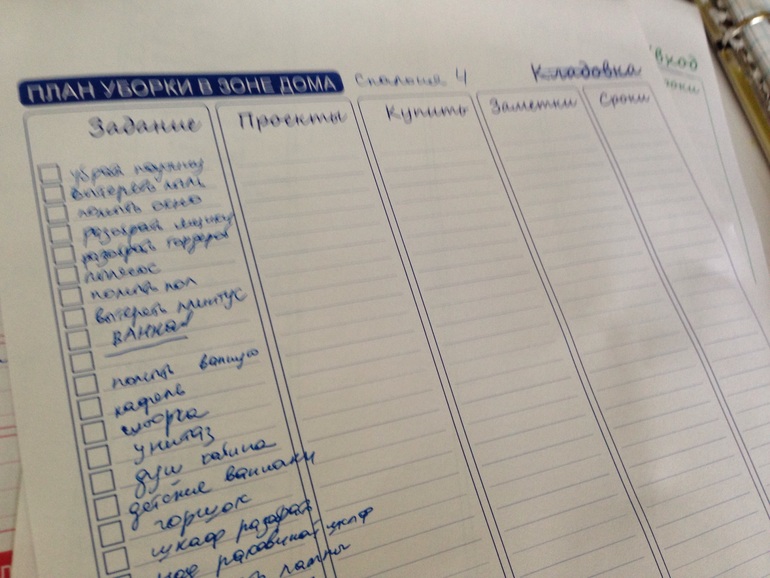 ПЛАН УБОРКИ В ЗОНЕ ДОМА Спальня 4 Кладовка
Задание Проекты Купить Заметки Сроки
вытереть пыль
помыть окно
разобрать
разобрать гардероб
пылесос
помыть пол
вытереть плинтус
ВАННАЯ
помыть ванную
кафель
шторка
унитаз
душ кабина
детские ванночки
горшок
шкаф разобрать
над раковиной шкаф